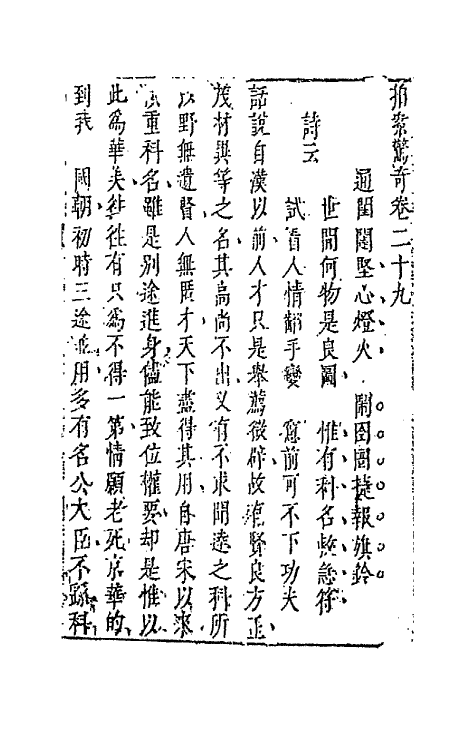 拍案驚奇卷二十九
通閨闥堅心燈火　鬧囹圄捷報旗鈴
詩云
世間何物是良圖　惟有科名救急符
試看人情翻手變　窓前可不下功夫
話說自漢以前人才只是舉薦徵辟故有賢良方正
茂材異等之名其高尚不出又有不求聞達之科所
以野無遺賢人無匿才天下盡得其用自唐宋以來
重科名雖是別途進身儘能致位權要却是惟以
此爲華美徃徃有只爲不得一第情願老死京華的
到我　國朝初時三途並用多有名公大臣不繇科